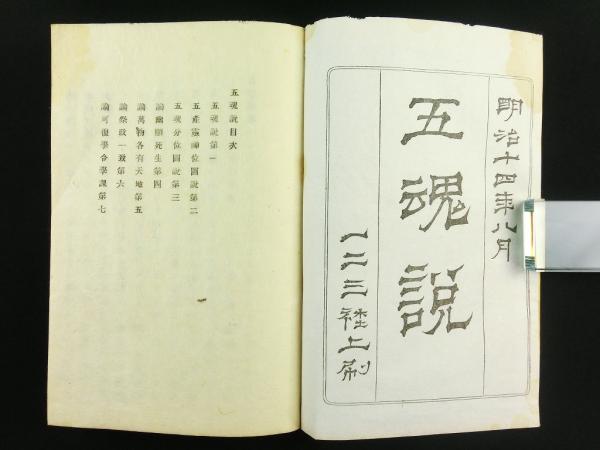 明治十四年八月
五魂説
一二三社上刷
五魂説目次
五魂説第一
五產靈神位圖説第二
五魂分位圖説第三
論幽顯死生第四
論萬物各有天地第五
論祭政一致第六
論可復學令學課第七